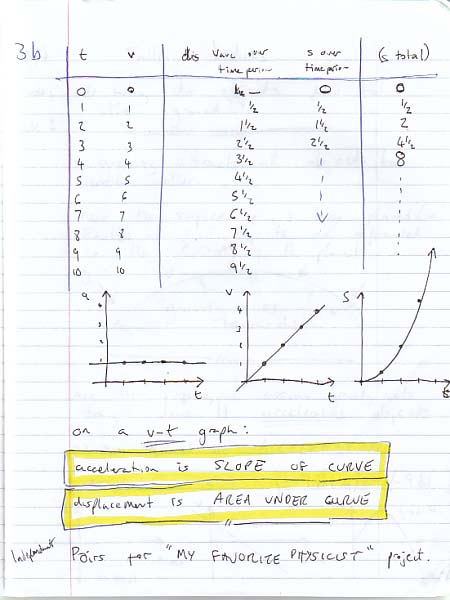 3b t v Vave over s over (s total)
time period time period
0 0 — 0 0
1 1 1/2 1/2 1/2
2 2 1 1/2 1 1/2 2
3 3 2 1/2 2 1/2 4 1/2
4 4 3 1/2 8
5 5 4 1/2
6 6 5 1/2
7 7 6 1/2
8 8 7 1/2
9 9 8 1/2
10 10 9 1/2
a v s
4 4
3 3
2 2
1 1
t t t
on a v-t graph:
acceleration is SLOPE OF CURVE
displacement is AREA UNDER CURVE
Independent Pairs for "MY FAVORITE PHYSICIST" project.